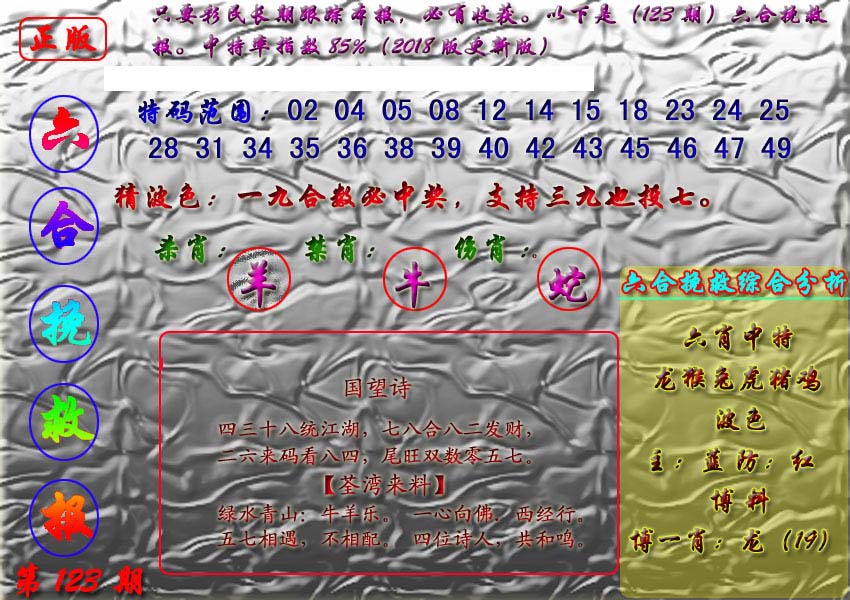 正版
只要彩民长期跟踪本报，必有收获。以下是（123期）六合挽救
报。中特率指数85%（2018版更新版）
六合挽救报
第123期
特码范围：02 04 05 08 12 14 15 18 23 24 25
28 31 34 35 36 38 39 40 42 43 45 46 47 49
猜波色：一九合数必中奖，支持三九也投七。
杀肖：羊 禁肖：牛 伤肖：蛇
国望诗
四三十八统江湖，七八合八二发财，
二六来码看八四，尾旺双数零五七。
【荃湾来料】
绿水青山：牛羊乐。 一心向佛．西经行。
五七相遇，不相配。 四位诗人，共和鸣。
六合挽救综合分析
六肖中特
龙猴兔虎猪鸡
波色
主：蓝防：红
博料
博一肖：龙（19）